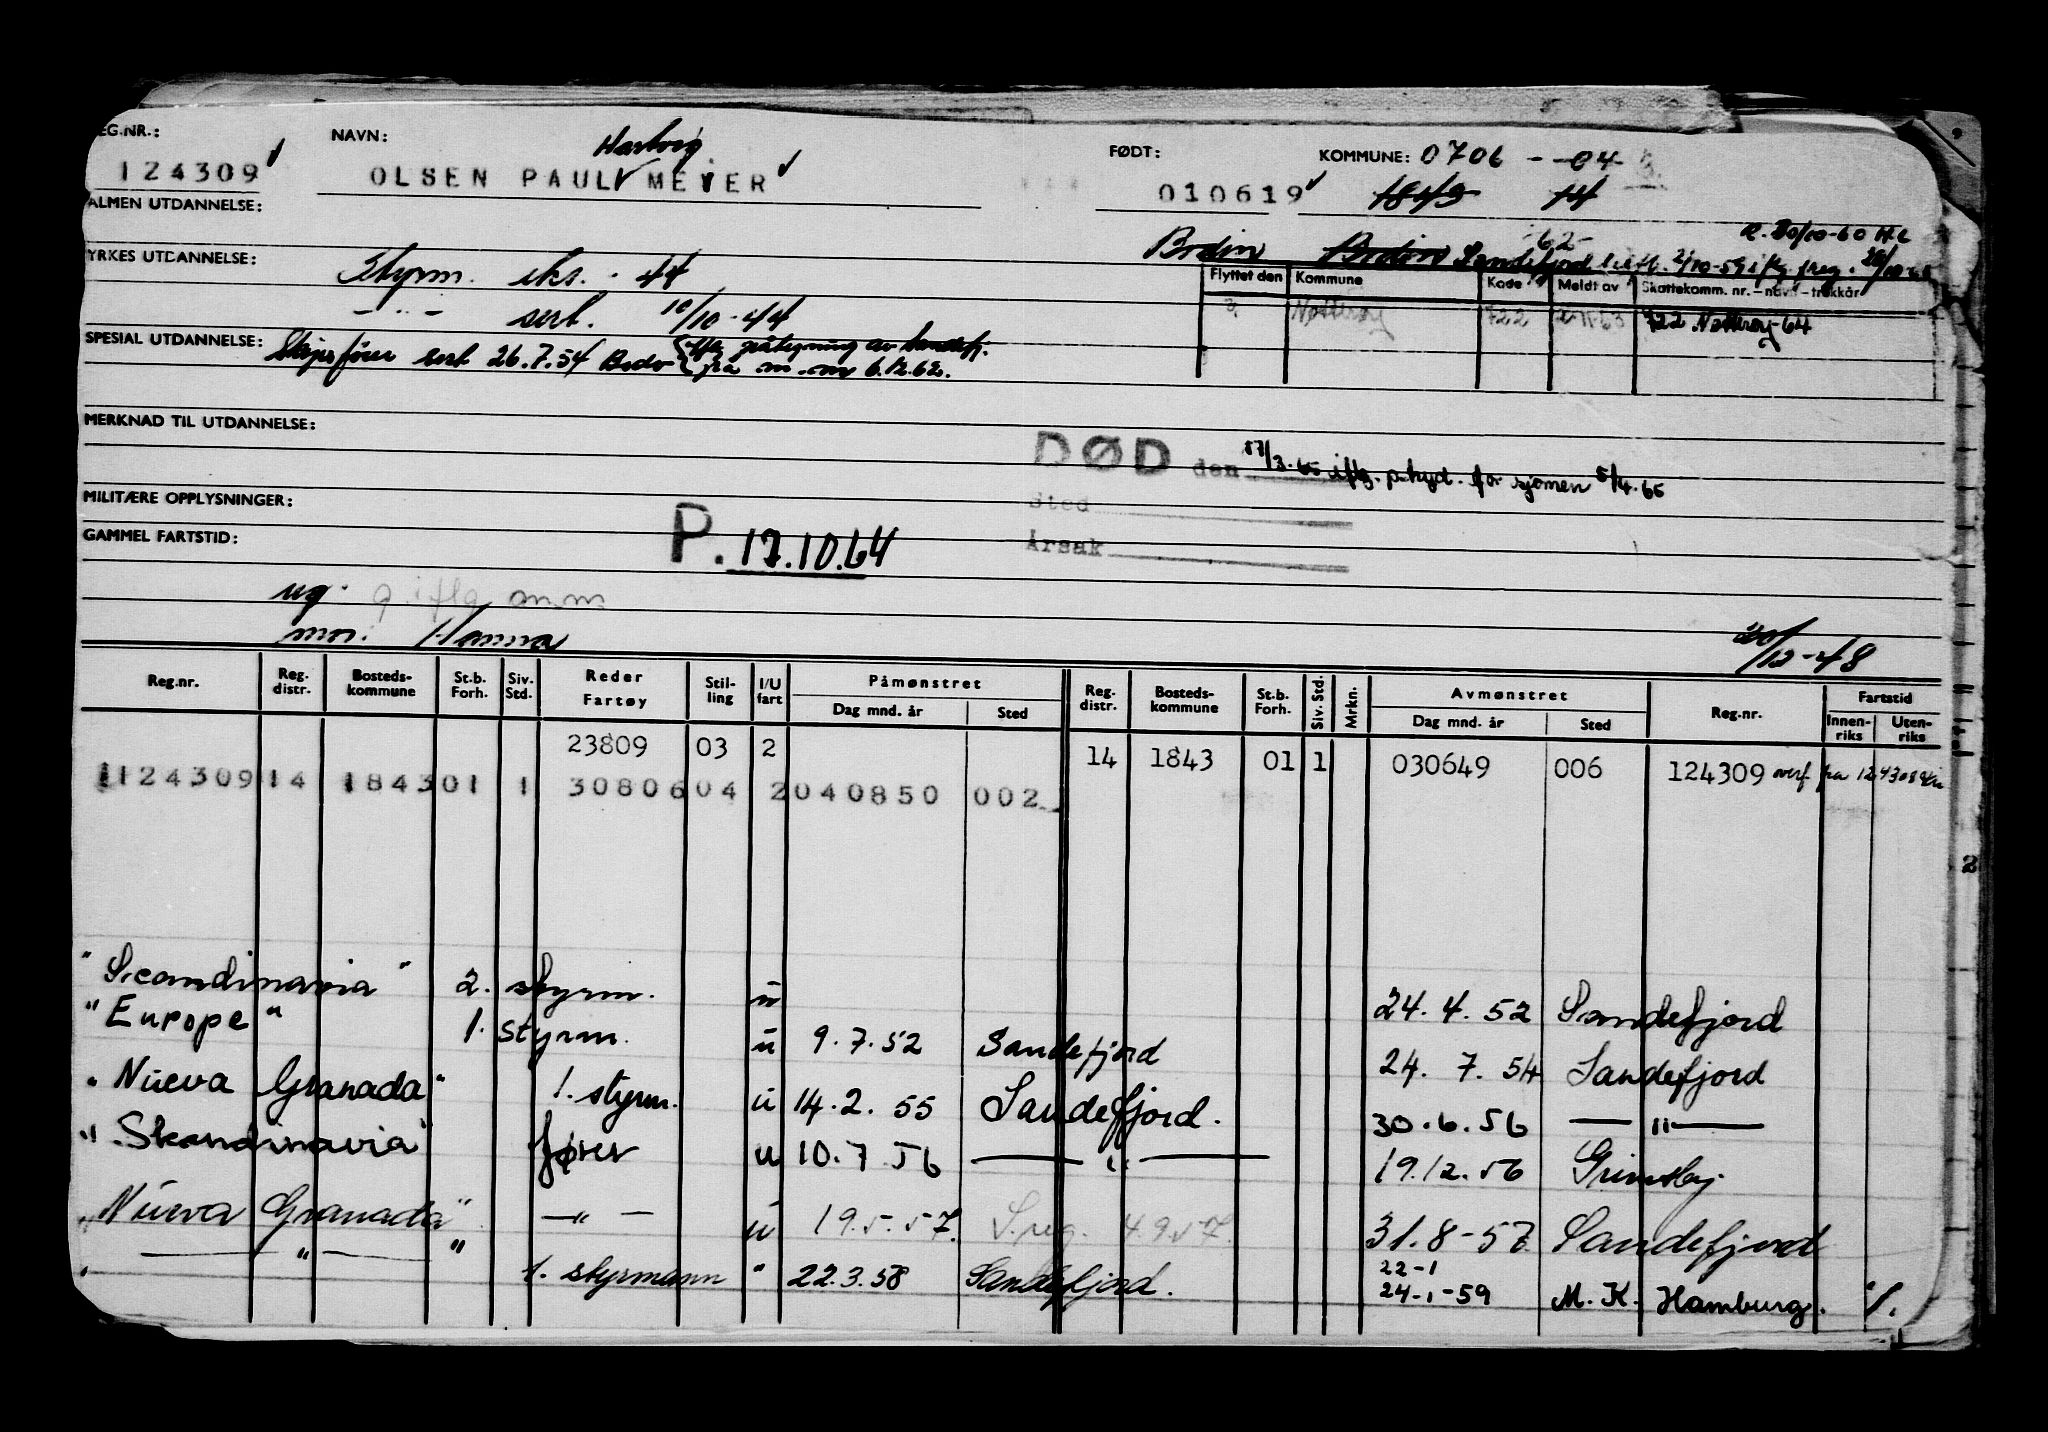 EG.NR.: NAVN: Hartvig FØDT: KOMMUNE: 0706 - - 04
124309 OLSEN PAUL MEYER 010619 1843 14
ALMEN UTDANNELSE:
Bodin Bodin Sandefjord
YRKES UTDANNELSE: Styrm. eks. - 44
Flyttet den Kommune Kode Meldt av Skattekomm. nr. - navn - trekkår
- " - sert. 10/10-44
Nøtterøy 722 722 Nøtterøy-64
SPESIAL UTDANNELSE: Skipsfører sert 26.7.54 Bodø
fra m.m. 6.12.62.
MERKNAD TIL UTDANNELSE:
DØD den 17/3-65 iflg. p.tryd. for sjømen 5/4.65
MILITÆRE OPPLYSNINGER:
sted
GAMMEL FARTSTID:
P. 17.10.64
Årsak
ug. g. iflg. m.m.
mor: Hanna
20/12-48
Reg.nr. Reg. distr. Bosteds-kommune St.b. Forh. Siv. Std. Reder Fartøy Stil-ling I/U fart Påmønstret Dag mnd. år Sted Reg. distr. Bosteds-kommune St.b. Forh. Siv. Std. Mrkn. Avmønstret Dag mnd. år Sted Reg.nr. Fartstid Innen-riks Uten-riks
23809 03 2 14 1843 01 1 030649 006 124309 overf fra 124308
1124309 14 184301 1 3080604 2040850 002
"Scandinavia" 2. styrm. u 24.4.52 Sandefjord
"Europe" 1. styrm. u 9.7.52 Sandefjord 24.7.54 Sandefjord
"Nueva Granada" 1. styrm. u 14.2.55 Sandefjord. 30.6.56 — " —
"Skandinavia" fører u 10.7.56 — " — 19.12.56 Grimsby
"Nueva Granada" — " — u 19.5.57. S.reg. 4.9.57. 31.8-57 Sandefjord
" — " — " 1. styrmann " 22.3.58 Sandefjord. 22-1 24-1-59 M.K. Hamburg.